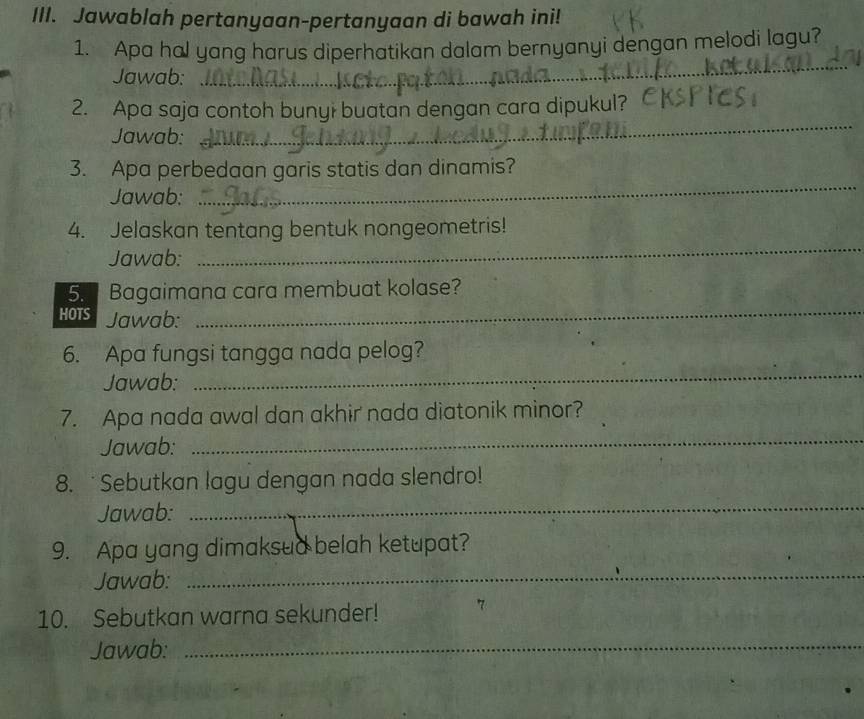 III. Jawablah pertanyaan-pertanyaan di bawah ini!
1. Apa hal yang harus diperhatikan dalam bernyanyi dengan melodi lagu?
Jawab: ketepatan nada, tempo, ketukan dan
ekspresi
2. Apa saja contoh bunyi buatan dengan cara dipukul?
Jawab: drum, gentang, bedug, timpani
3. Apa perbedaan garis statis dan dinamis?
Jawab: - garis
4. Jelaskan tentang bentuk nongeometris!
Jawab:
5. Bagaimana cara membuat kolase?
HOTS Jawab:
6. Apa fungsi tangga nada pelog?
Jawab:
7. Apa nada awal dan akhir nada diatonik minor?
Jawab:
8. Sebutkan lagu dengan nada slendro!
Jawab:
9. Apa yang dimaksud belah ketupat?
Jawab:
10. Sebutkan warna sekunder!
Jawab: